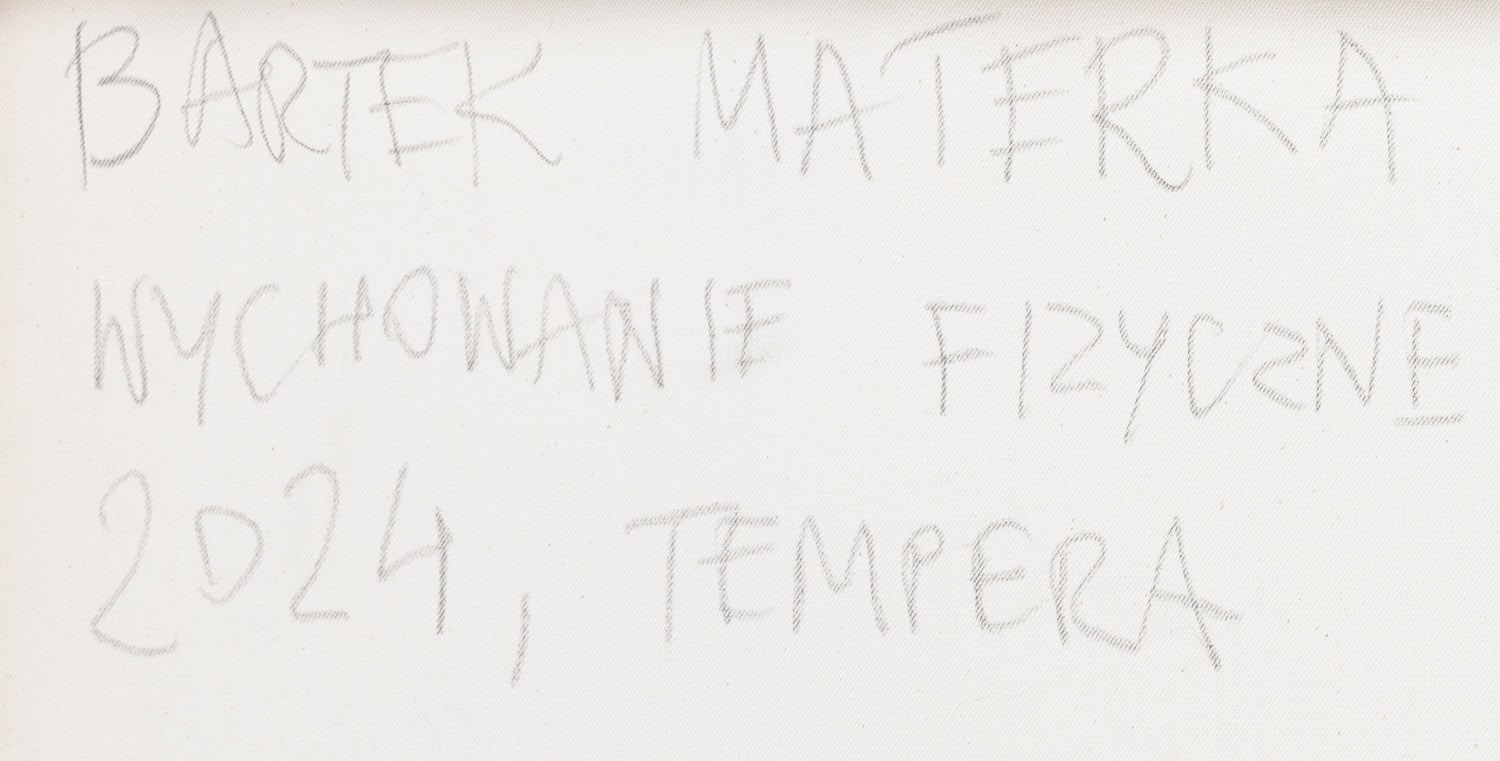 BARTEK MATERKA
WYCHOWANIE FIZYCZNE
2024, TEMPERA